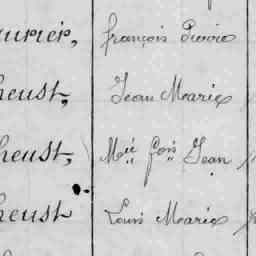 urier, françois Pierre
heust, Jean Marie
heust, Mie fois Jean
heust Louis Marie